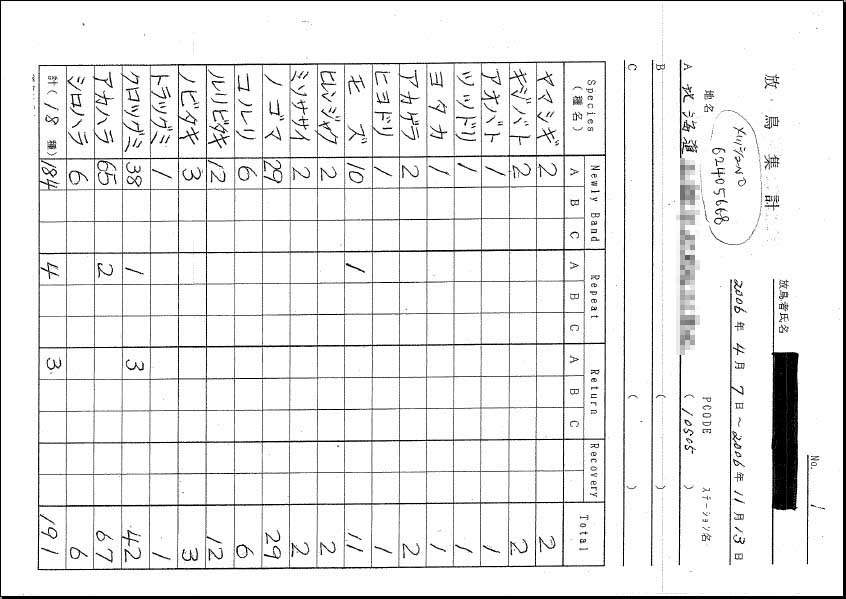 No. 1
放 鳥 集 計
放鳥者氏名
メリジョンNO
62405668
2006 年 4 月 7 日 ~ 2006 年 11 月 13 日
地名 PCODE ステーション名
A 北海道 ( 10505 )
B ( )
C ( )
Species (種名) Newly Band Repeat Return Recovery Total
A B C A B C A B C
ヤマシギ 2 2
キジバト 2 2
アオバト 1 1
ツツドリ 1 1
ヨタカ 1 1
アカゲラ 2 2
ヒヨドリ 1 1
モズ 10 1 11
ヒレンジャク 2 2
ミソサザイ 2 2
ノゴマ 29 29
コルリ 6 6
ルリビタキ 12 12
ノビタキ 3 3
トラツグミ 1 1
クロツグミ 38 1 3 42
アカハラ 65 2 67
シロハラ 6 6
計 ( 18 種) 184 4 3 191